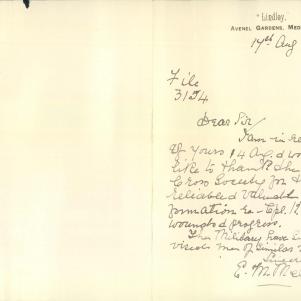 "Lindley,"
Avenel Gardens, Med
17th Aug
File
3154
Dear Sir
I am in re
of yours 14 Aug. & wo
like to thank the
Cross Society for
reliable & valuable
formation re - Cpl.
wounds & progress.
The Military have
vised me of similar
Sincer
E. M. Me